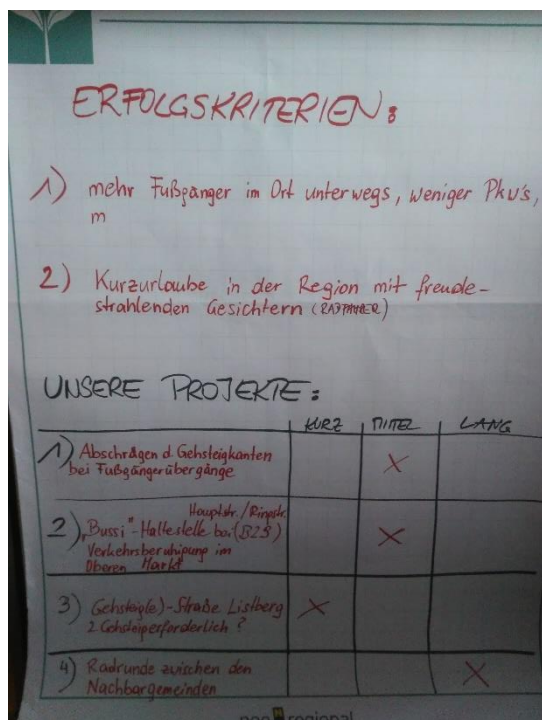 ERFOLGSKRITERIEN:
1) mehr Fußgänger im Ort unterwegs, weniger Pkw's,
m
2) Kurzurlaube in der Region mit freude-
strahlenden Gesichtern (RADFAHRER)
UNSERE PROJEKTE:
KURZ MITTEL LANG
1) Abschrägen d. Gehsteigkanten
bei Fußgängerübergänge
X
Hauptstr./Ringstr.
2) "Bussi"-Haltestelle (B28)
Verkehrsberuhigung im
Oberen Markt
X
3) Gehsteig(e)-Straße Listberg
2 Gehsteig erforderlich?
X
4) Radrunde zwischen den
Nachbargemeinden
X
regional